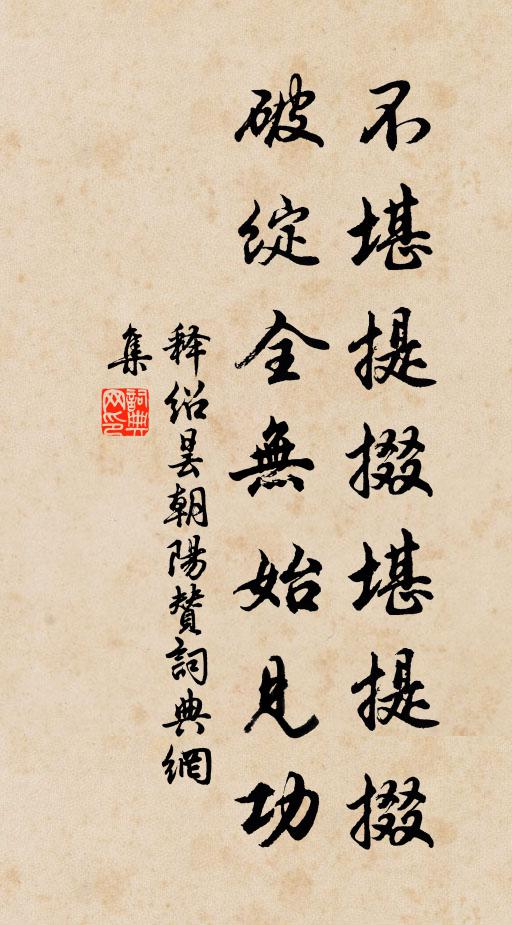 不堪提掇堪提掇
破綻全無始見功
释绍昙朝陽賛詞典網
集
詞典
网印